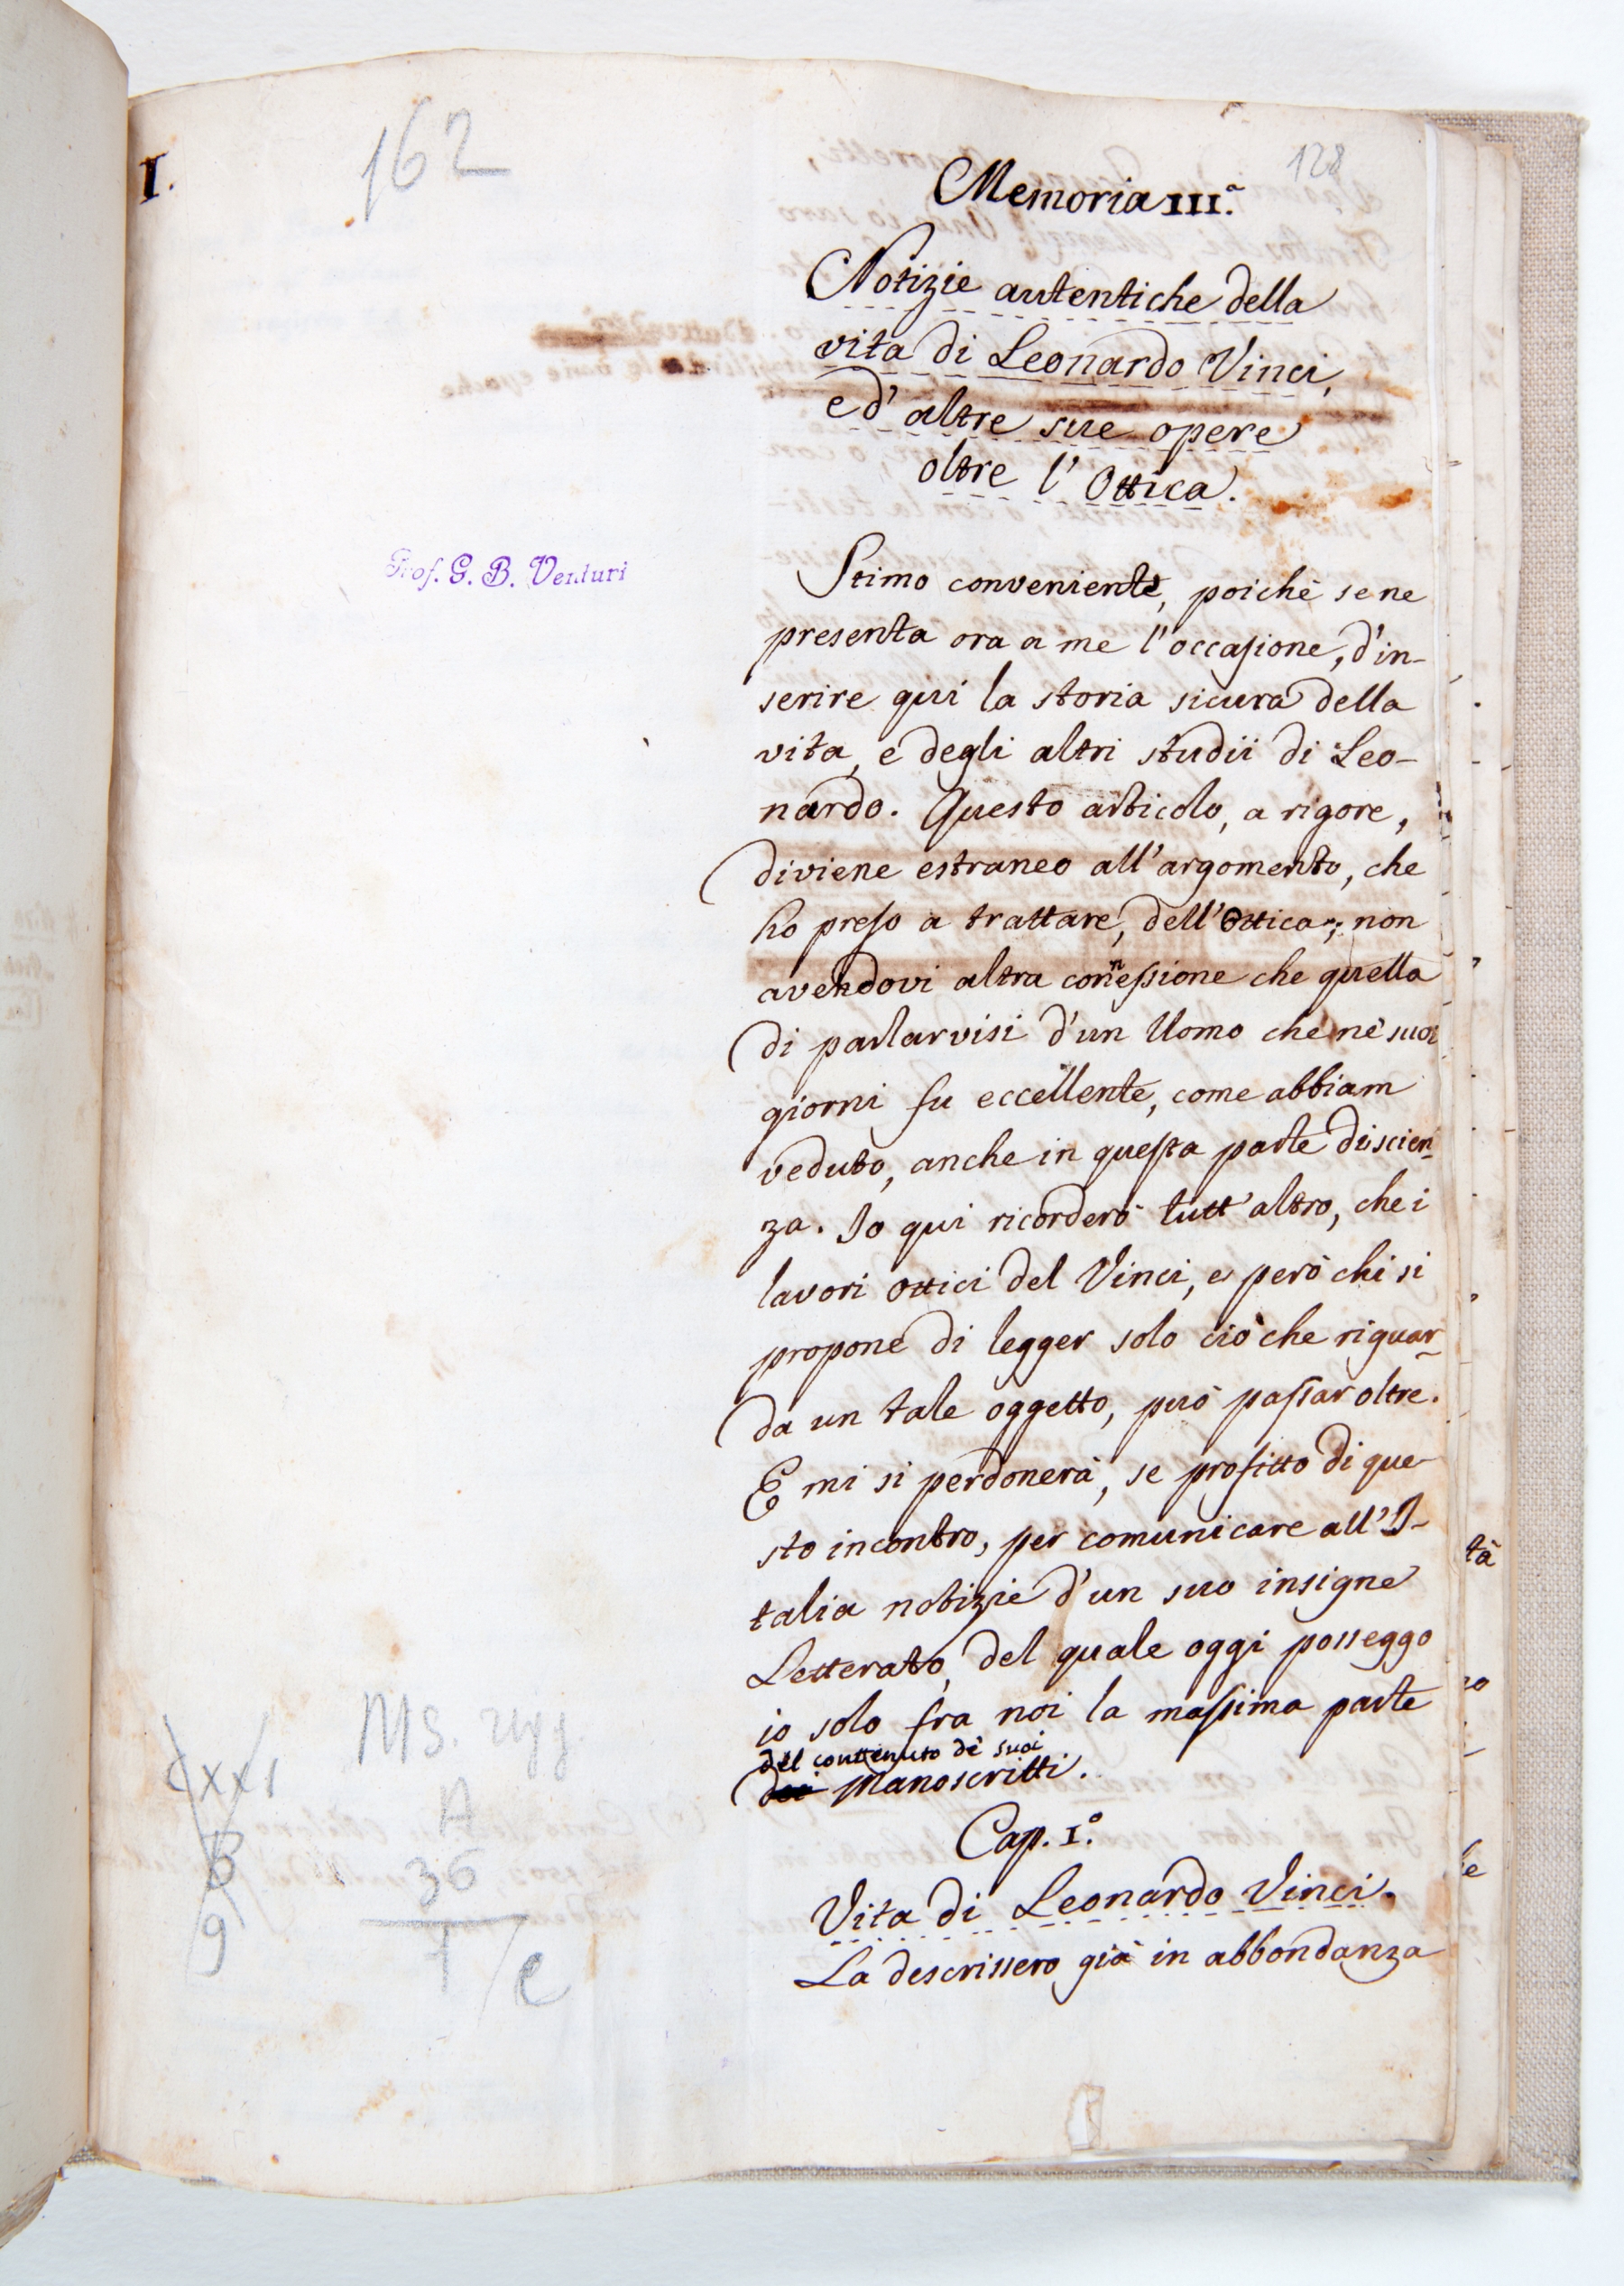 I.
162
128
Memoria III.ª
Notizie autentiche della
vita di Leonardo Vinci,
ed' altre sue opere
oltre l' Ottica.
Prof. G. B. Venturi
Stimo conveniente, poichè se ne
presenta ora a me l'occasione, d'in-
serire qui la storia sicura della
vita, e degli altri studii di Leo-
nardo. Questo articolo, a rigore,
diviene estraneo all'argomento, che
ho preso a trattare, dell'Ottica; non
avendovi altra connessione che quella
di parlarvisi d'un Uomo che nè suoi
giorni fu eccellente, come abbiam
veduto, anche in questa parte di scien-
za. Io qui ricorderò tutt'altro, che i
lavori ottici del Vinci, e però chi si
propone di legger solo ciò che riguar-
da un tale oggetto, può passar oltre.
E mi si perdonerà, se profitto di que-
sto incontro, per comunicare all'I-
talia notizie d'un suo insigne
Letterato, del quale oggi posseggo
io solo fra noi la massima parte
del contenuto dè suoi
dei Manoscritti.
Cap. I.º
Vita di Leonardo Vinci.
La descrissero già in abbondanza
cxxi
B
9
MS.
A
36
1/e